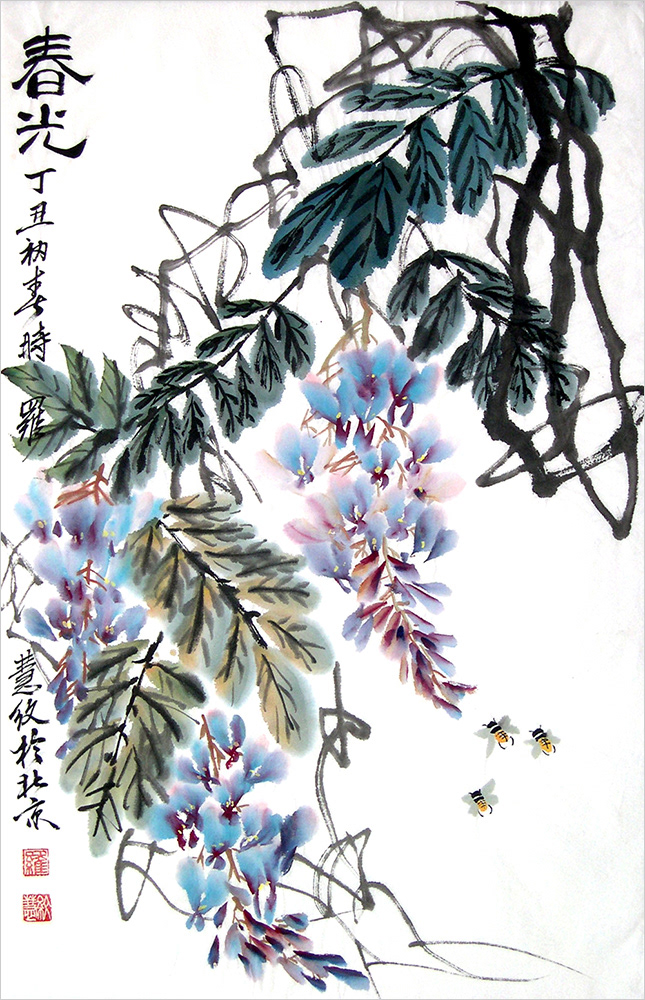 春光
丁丑初春時羅
慧於北京